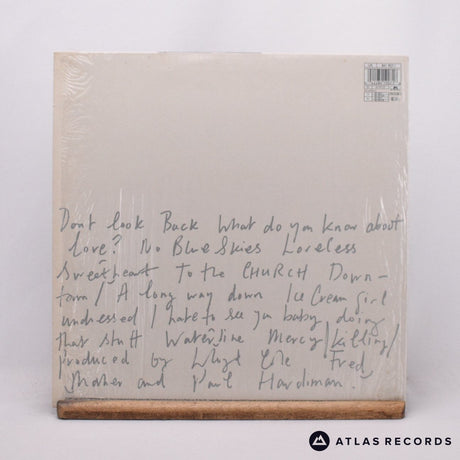 Dont look Back What do you know about
love? No Blue Skies Loveless
Sweetheart To the CHURCH Down-
town / A long way down Ice Cream girl
undressed I hate to see you baby doing
that stuff Waterline Mercy/killing/
produced by Lloyd Cole Fred
Maher and Paul Hardiman.
ATLAS RECORDS